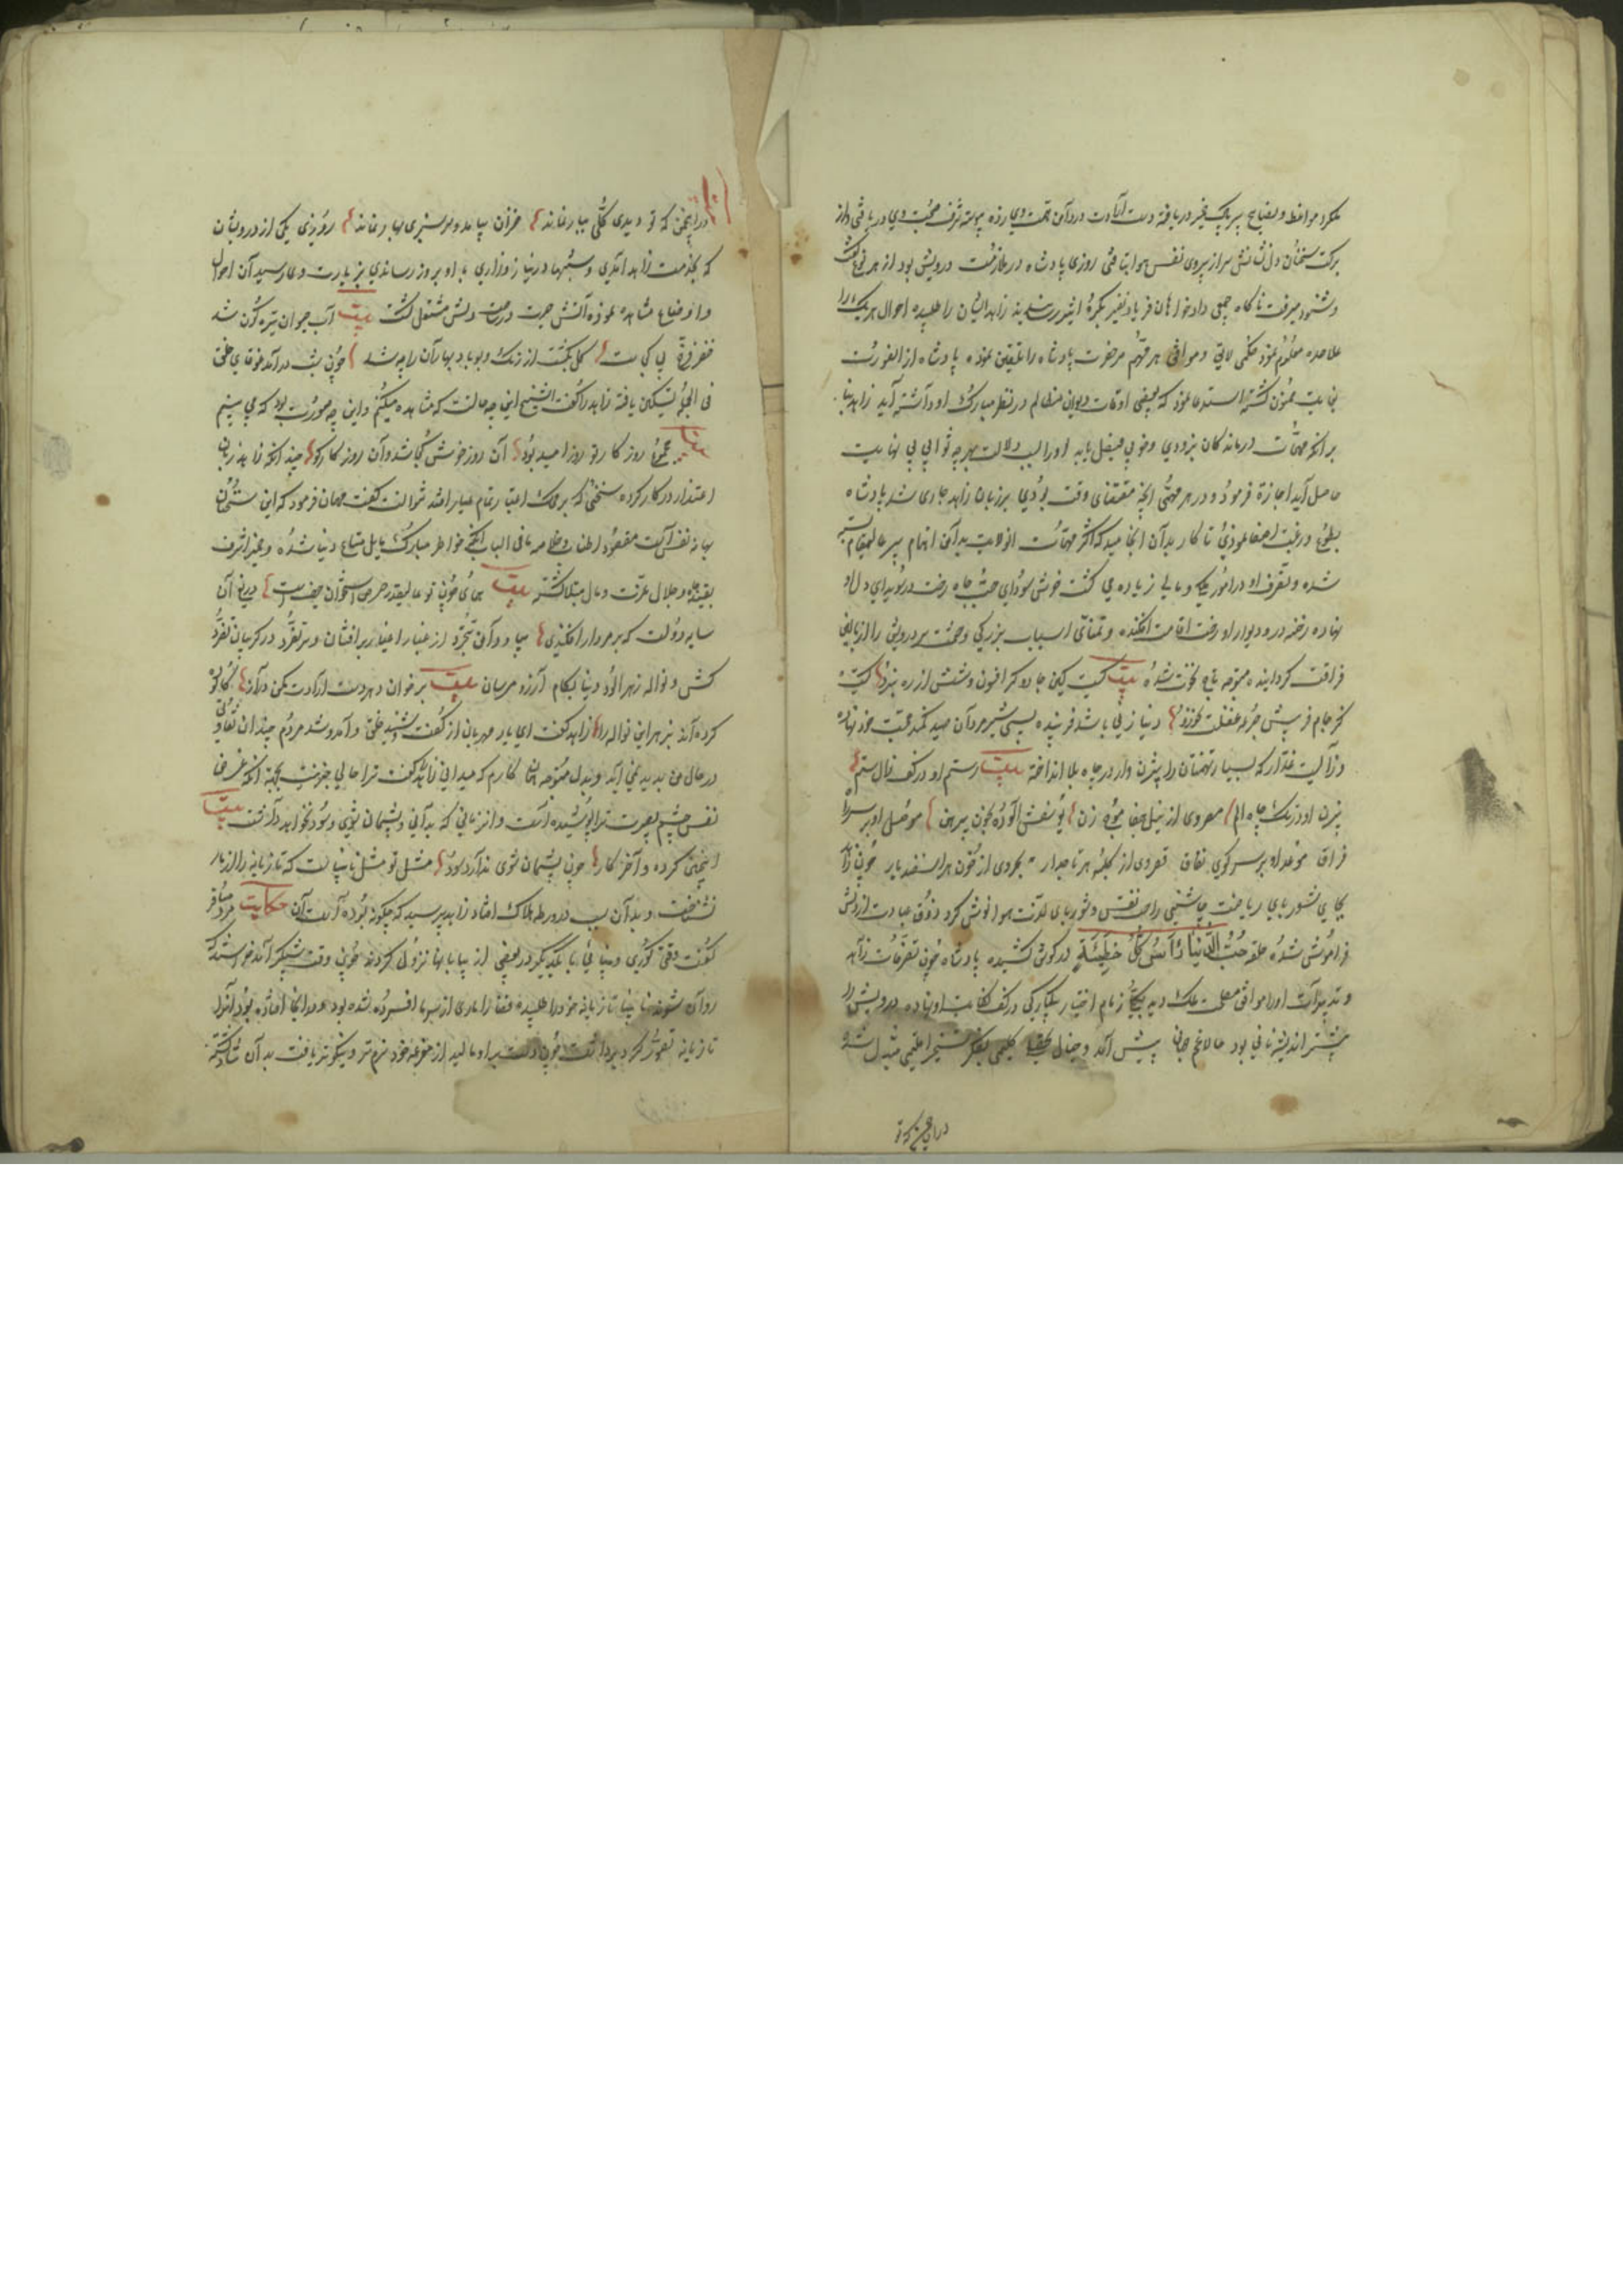 میکرد مواعظ و نصایح پیر پاک ضمیر دریافته دست ارادت در دامن همت وی زده پیوسته شرف صحبت وی دریافتی و از
برکت سخنان دل نشانش سر از پیروی نفس هوا بتافتی روزی پادشاه در ملازمت درویش بود از هر نوع گفت
و شنود میرفت ناگاه جمعی دادخواهان فریاد و نفیر بکره اثیر رسانیدند زاهد ایشان را طلبیده احوال هر یک را
علاحده معلوم نمود حکمی لایق و موافق هر مهم مر حضرت پادشاه را تلقین نموده پادشاه از آن صورت
بغایت ممنون گشته استدعا نمود که بعضی اوقات دیوان مظالم در نظر مبارک او داشته آید زاهد بنا
بر آنکه مهمات درماندگان بزودی و خوبی فیصل یابد او را بسبب دلالت بهر چه ثوابی بی نهایت
حاصل آید اجازه فرمود و در هر مهمی آنچه مقتضای وقت بودی بر زبان زاهد جاری شد پادشاه
بطوع و رغبت اصغا نمودی تا کار بدان انجامید که اکثر مهمات آن ولایت بدامن اهتمام پیر عالیمقام
شده و تصرف او در امور ملکی و مالی زیاده می گشت خوش سودای حب جاه رخت در سویدای دل او
نهاده رخنه در و دیوار او رخت اقامت افکنده و تمنای اسباب بزرگی و حشمت سر درویش را از بالین
فراغت گردانیده متوجه تاج نخوت شده بیت کیست کین جادو گر افسون و شش از ره نبرد کیست
کز جام فریبش جرعه غفلت نخورد دنیا زنی باشد فریبنده بسی شیر مردان صید کند محبت خود نهاده
و زالیست غدار که بسیار تهمتنان را بیژن وار در چاه بلا انداخته بیت رستم او در کف زال ستم
بیژن او در تک چاه الم مصروی از نیل جفا موج زن یوسفش آلوده بخون پیرهن موصل او بر سر راه
فراق بغداد او بر سر کوی نفاق قصروی از کینه هر تاجدار بحروی از خون هر اسفندیار چون زاهد
بجای شوربای ریاضت چاشنی راحت نفس و شوربای لذت هوا نوش کرد ذوق عبادت از دلش
فراموش شده حلقه حُبُّ الدُّنیا رَأسُ کُلِّ خَطِیئَةٍ در گوش کشیده پادشاه چون تصرفات زاهد
و تدبیرات او را موافق مصلحت ملک دید یکبار زمام اختیار بیکبارگی در کف کفایت او نهاده درویش را
بیشتر اندیشه نانی بود حالا غم جهانی پیش آمد و خیال تحصیل گلیمی بفکر تسخیر اقلیمی مبدل شده
در این چمن که تو
در این چمن که تو دیدی گلی ببار نماند خزان بیامد و سرسبزی بهار نماند روزی یکی از درویشان
که بخدمت زاهد آمدی و شبها در نیاز و زاری با او بروز رساندی بزیارت وی رسید آن احوال
و اوضاع مشاهده نموده آتش حیرت در ساحت دلش مشتعل گشت بیت آب حیوان تیره گون شد
خضر فرخ پی کجاست گل بگشت از رنگ و بو باد بهاران را چه شد چون شب در آمد غوغای خلق
فی الجمله تسکین یافته زاهد را گفت ای شیخ این چه حالت که مشاهده میکنم و این چه صورت بود که می بینم
بیت همچو روز کار تو روز امید بود آن روز خوش کجا شد و آن روز کار کو چندانکه زاهد زبان
اعتذار در کار کرده سخنی که بر محک اعتبار تمام عیار افتد نتوانست گفت مهمان فرمود که این سخنان
بهانه نفس است مقصود اطناب و خلاصه ما فی الباب آنکه خاطر مبارک مایل متاع دنیا شده و ضمیر اشرف
بقید جاه و جلال عزت و مال مبتلا گشته بیت همای چون تو عالیقدر حرص استخوان حیفست دریغ آن
سایه دولت که بر مردار افکندی بیا و دامن تجرد از غبار اغیار بر افشان و سر تفرد در گریبان تفرد
کش و نواله زهرآلود دنیا بکام آرزو مرسان بیت بر خوان دهر دست ارادت مکن دراز کآلوده
کرده اند بزهر این نواله را زاهد گفت ای یار مهربان از گفت و شنید خلق و آمد و شد مردم چندان تفاوتی
در حال من پدید نمی آید و بدل متوجه همان کارم که میدانی زاهد گفت ترا حالی خبر نیست بجهة آنکه غرض
نفس چشم بصیرت ترا پوشیده است و آن زمانی که بدانی و پشیمان شوی و سود نخواهد داشت بیت
اینچنین کرده و آخر کار چون پشیمان شوی ندارد سود مثل تو مثل نابیناست که تازیانه را از مار
نشناخت و بدان سبب در ورطه هلاک افتاد زاهد پرسید که چگونه بوده است آن حکایت مرد مسافر
گفت وقتی کوری و بینایی با یکدیگر در بعضی از بیابانها نزول کردند چون وقت شبگیر آمد خواستند که
روانه شوند نابینا تازیانه خود را طلبیده قضا را ماری از سرما افسرده شده بود و در آنجا افتاده بود آنرا
تازیانه تصور کرد برداشت چون دست بر او مالید از مقرعه خود نرم تر و نیکوتر یافت بدان شاد گشته